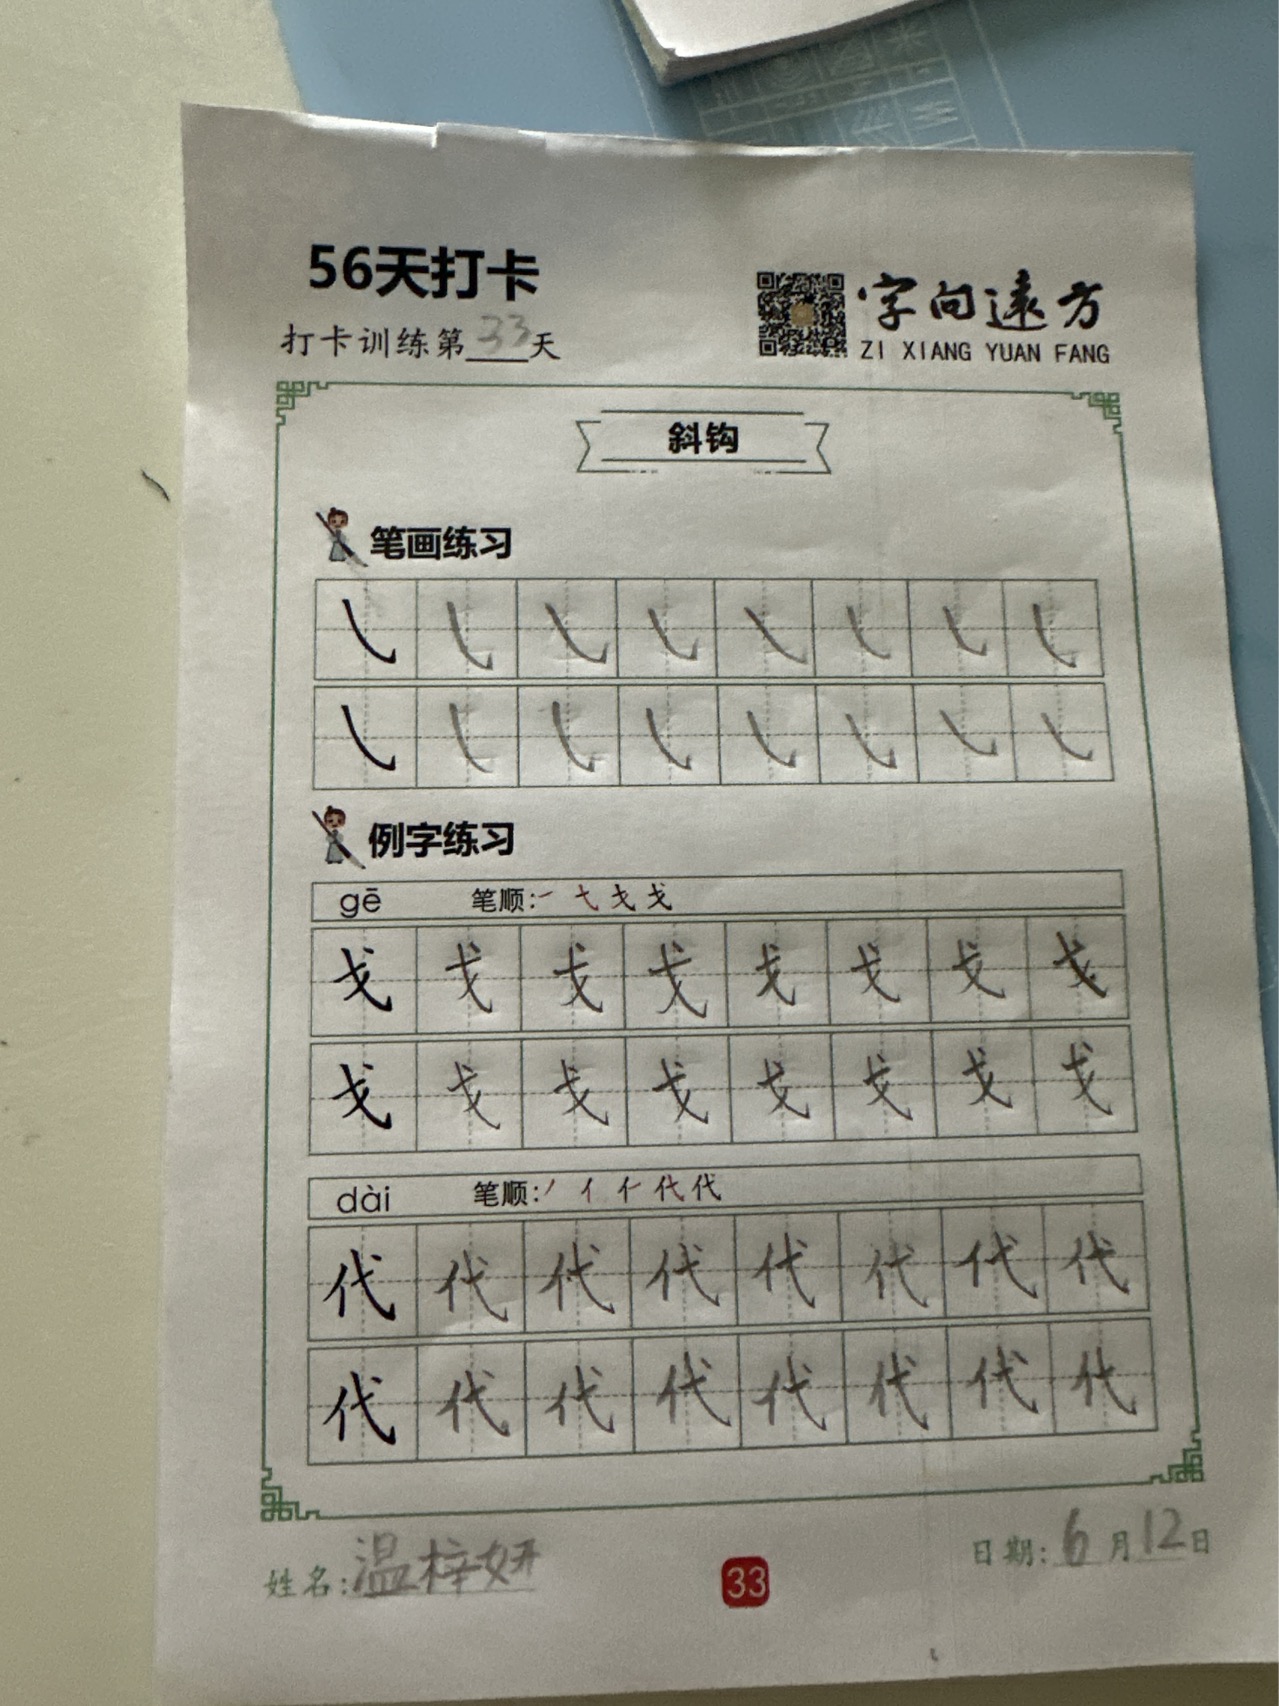 56天打卡
打卡训练第33天
字向遠方
ZI XIANG YUAN FANG
斜钩
笔画练习
㇂ ㇂ ㇂ ㇂ ㇂ ㇂ ㇂ ㇂
㇂ ㇂ ㇂ ㇂ ㇂ ㇂ ㇂ ㇂
例字练习
gē 笔顺: 一 弋 戈 戈
戈 戈 戈 戈 戈 戈 戈 戈
戈 戈 戈 戈 戈 戈 戈 戈
dài 笔顺: 丿 亻 仁 代 代
代 代 代 代 代 代 代 代
代 代 代 代 代 代 代 代
姓名:温梓妍
33
日期:6月12日